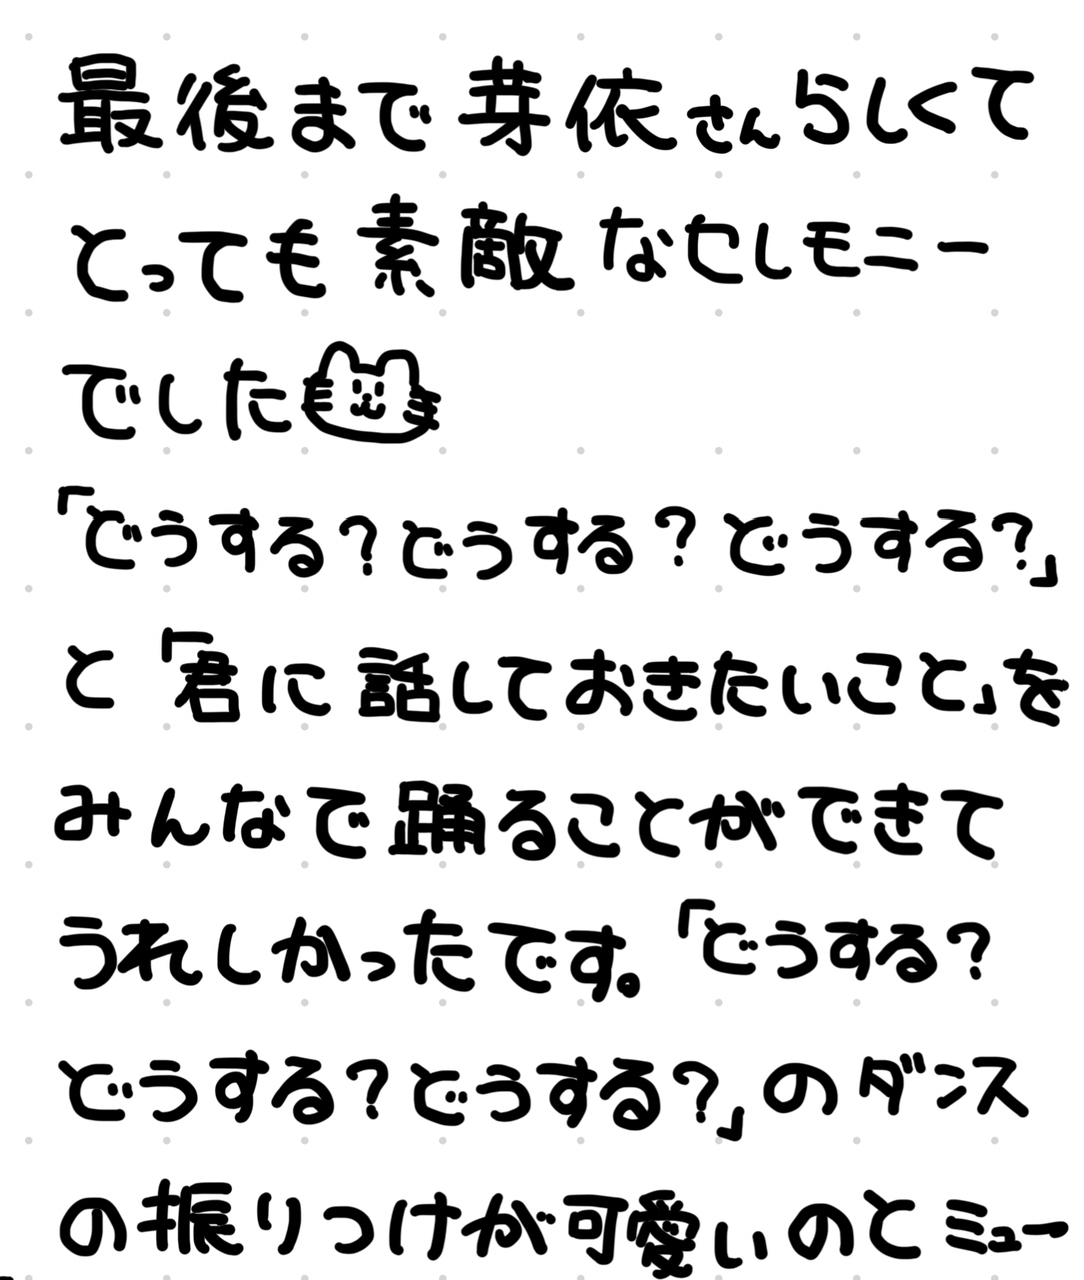 最後まで芽依さんらしくて
とっても素敵なセレモニー
でした
「どうする？どうする？どうする？」
と「君に話しておきたいこと」を
みんなで踊ることができて
うれしかったです。「どうする？
どうする？どうする？」のダンス
の振りつけが可愛いのとミュー